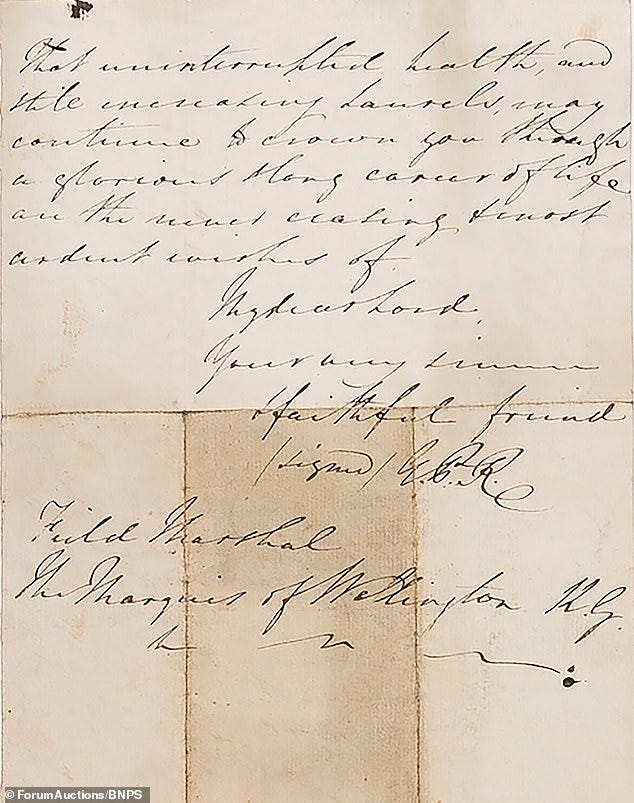 That uninterrupted health, and
still increasing Laurels, may
continue to crown you through
a glorious & long career of life
are the never ceasing & most
ardent wishes of
My dear Lord,
Your very sincere
& faithful friend
(signed) G.P.R.
Field Marshal
The Marquis of Wellington K.G.
© ForumAuctions/BNPS